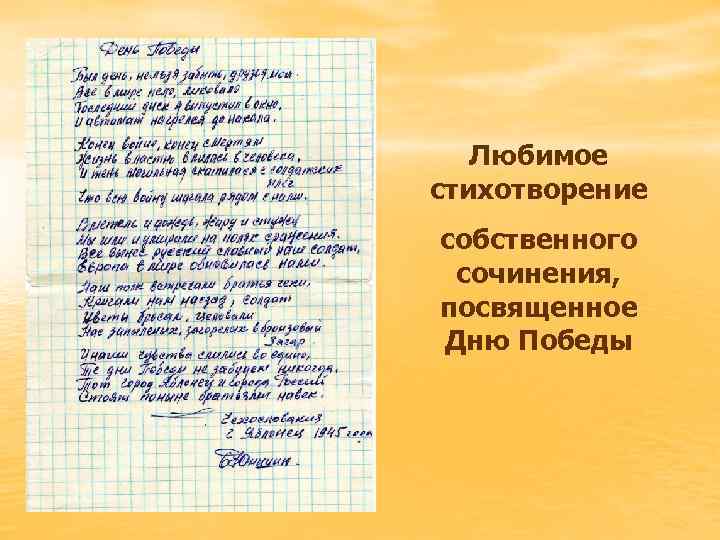 День Победы
Был день, нельзя забыть, друзья мои.
Всё в мире пело, ликовало
Последний диск я выпустил в окно,
И автомат нагрелся до накала.
Конец войне, конец смертям
Жизнь властно влилась в человека,
И тень могильная скатилася с солдатских
плеч
Что всю войну шагала рядом с нами.
В метель и дождь, жару и стужу
Мы шли и умирали на полях сражения.
Всё вынес русский славный наш солдат,
Европа в мире обновилась нами.
Наш полк встречали братья чехи,
Кричали нам наздар, солдат
Цветы бросали, целовали
Нас запыленых, загорелых в бронзовый
загар
И наши чувства слились во едино,
Те дни Победы не забудем никогда.
Тот город Яблонец и города России
Стоят поныне братьями навек.
Чехословакия
г. Яблонец 1945 года
Любимое
стихотворение
собственного
сочинения,
посвященное
Дню Победы